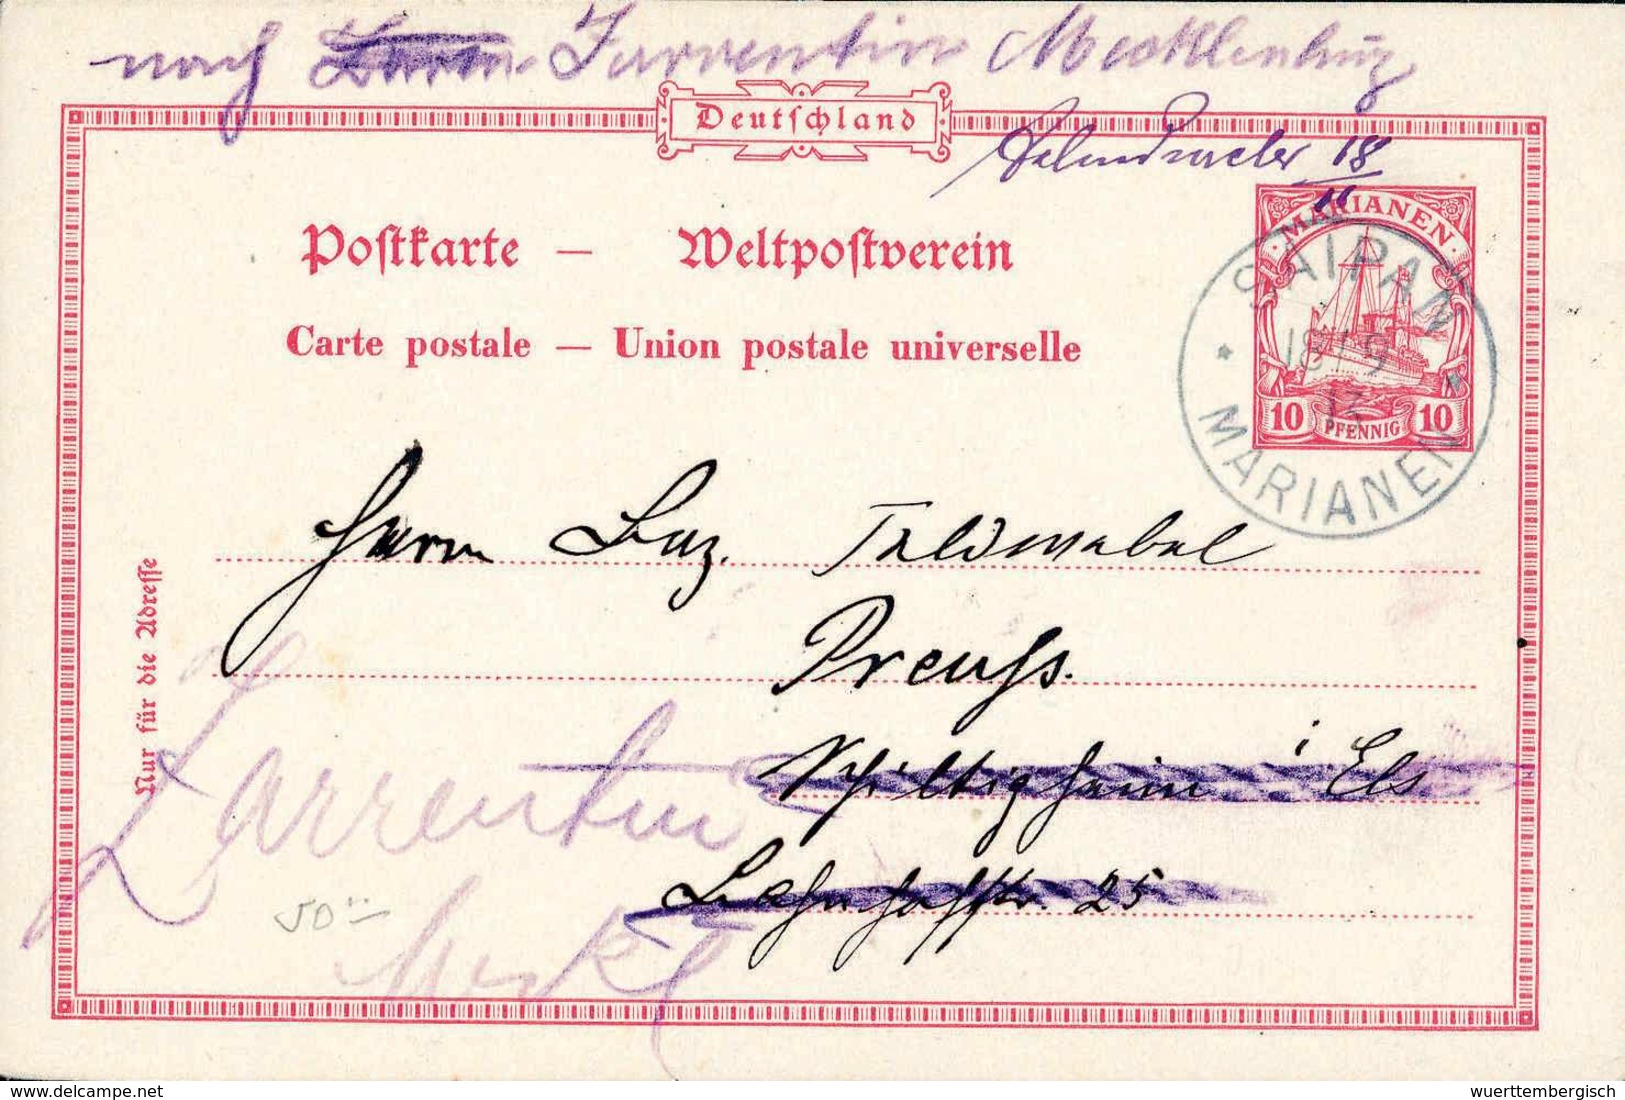 nach Zarrentin Mecklenburg
Deutſchland
18/11
MARIANEN
Poſtkarte — Weltpoſtverein
Carte postale — Union postale universelle
SAIPAN
18/9
13
MARIANEN
10 PFENNIG 10
Herrn
Preuſs.
Schiltigheim i Els
Bahnhofſtr. 25
Nur für die Adreſſe
Zarrentin
Meckl
50
© www.delcampe.net
wuerttembergisch